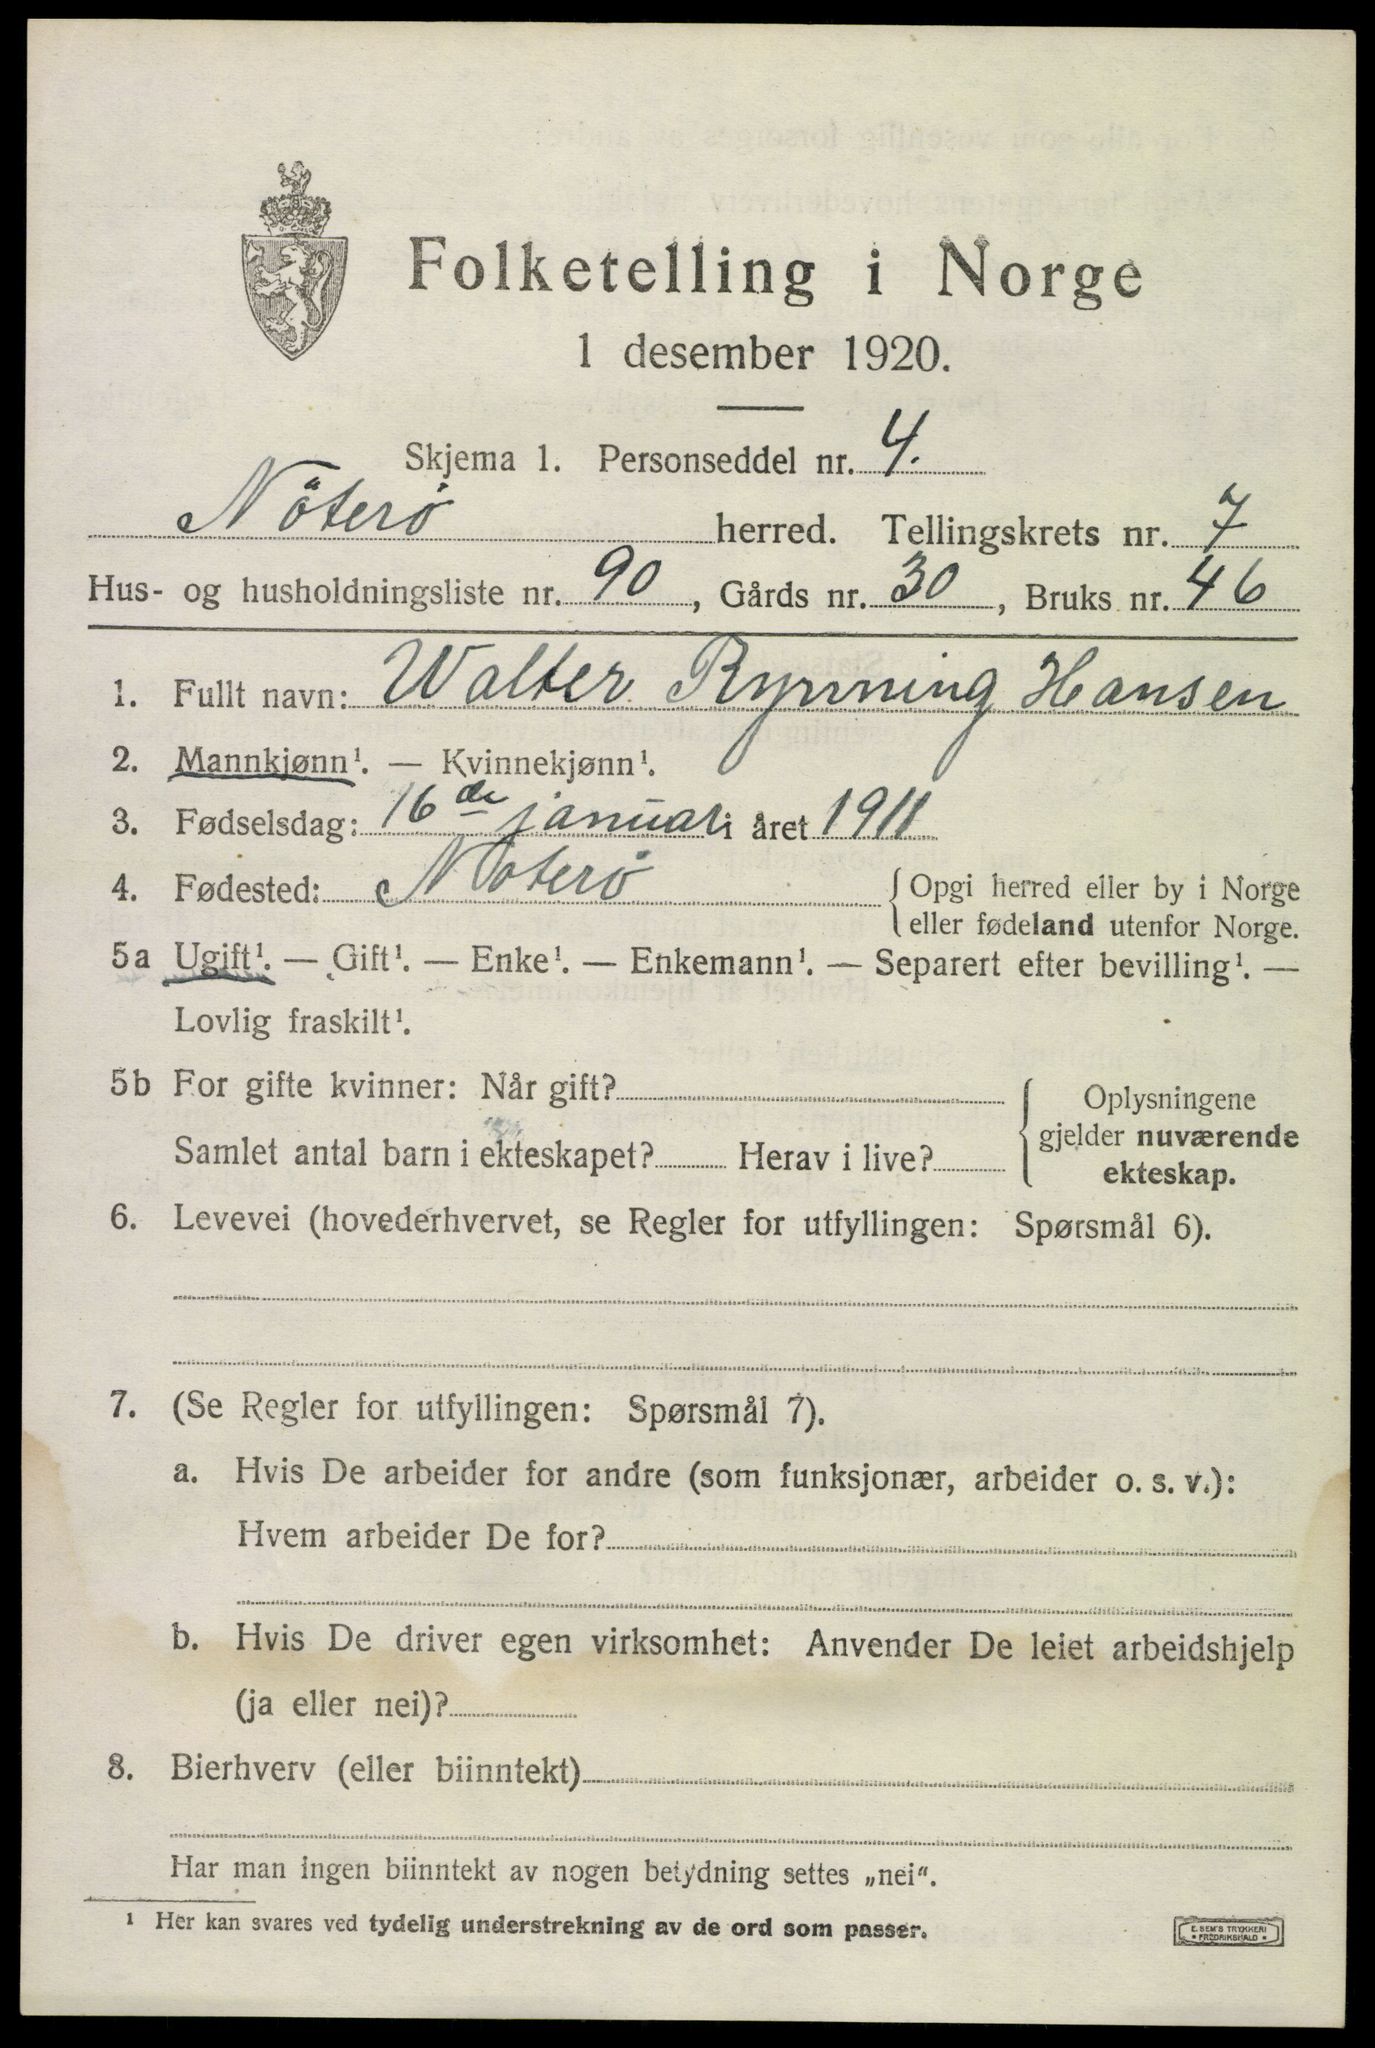 Folketelling i Norge
1 desember 1920.
Skjema 1. Personseddel nr. 4.
Nöterö herred. Tellingskrets nr. 7
Hus- og husholdningsliste nr. 90, Gårds nr. 30, Bruks nr. 46
1. Fullt navn: Walter Rynning Hansen
2. Mannkjønn¹. — Kvinnekjønn¹.
3. Fødselsdag: 16de januar i året 1911
4. Fødested: Nøterö { Opgi herred eller by i Norge
eller fødeland utenfor Norge.
5a Ugift¹. — Gift¹. — Enke¹. — Enkemann¹. — Separert efter bevilling¹. —
Lovlig fraskilt¹.
5b For gifte kvinner: Når gift?
Samlet antal barn i ekteskapet? Herav i live?
{ Oplysningene
gjelder nuværende
ekteskap.
6. Levevei (hovederhvervet, se Regler for utfyllingen: Spørsmål 6).
7. (Se Regler for utfyllingen: Spørsmål 7).
a. Hvis De arbeider for andre (som funksjonær, arbeider o. s. v.):
Hvem arbeider De for?
b. Hvis De driver egen virksomhet: Anvender De leiet arbeidshjelp
(ja eller nei)?
8. Bierhverv (eller biinntekt)
Har man ingen biinntekt av nogen betydning settes „nei“.
¹ Her kan svares ved tydelig understrekning av de ord som passer.
E. SEM'S TRYKKERI
* FREDRIKSHALD *